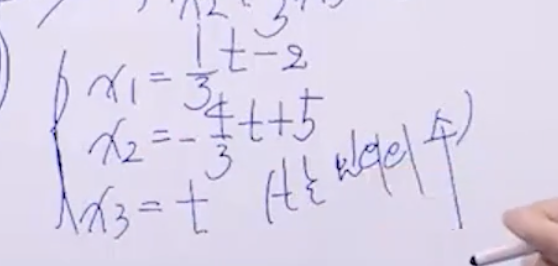 x₁ = 1/3 t - 2
x₂ = -4/3 t + 5
x₃ = t (t는 임의의 수)